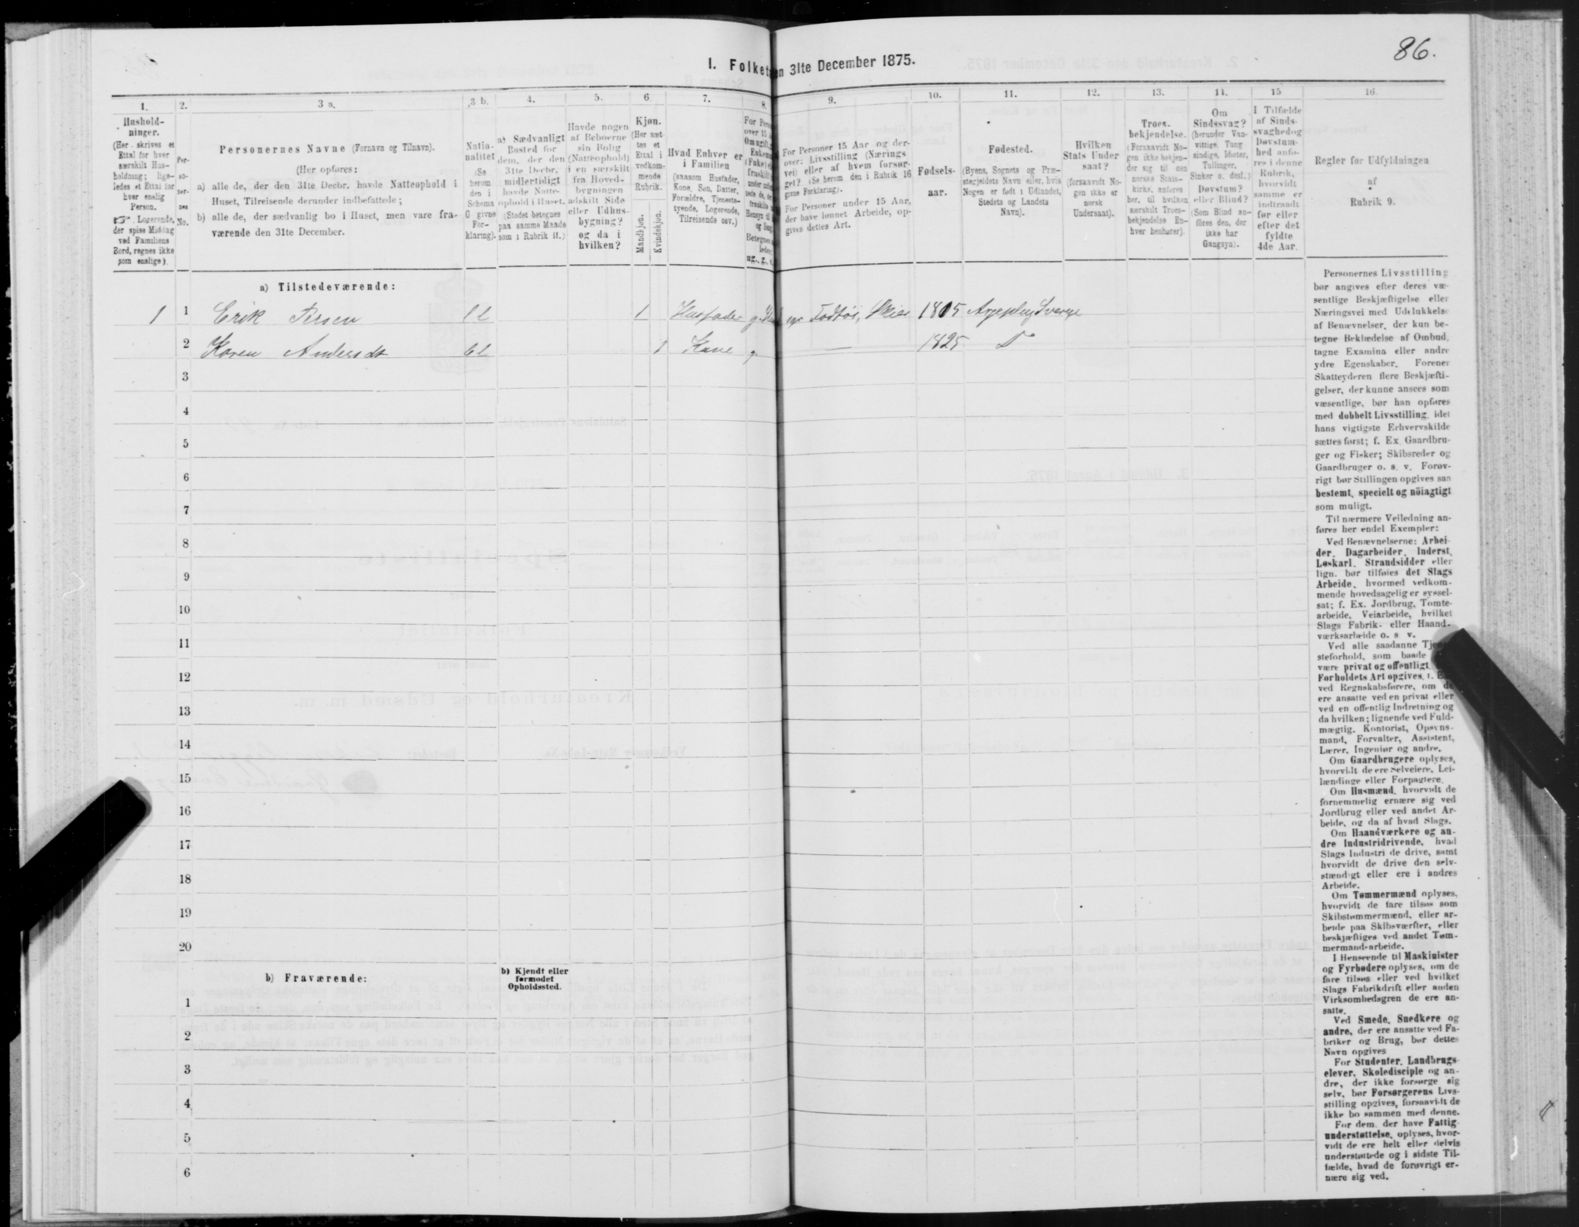 86.
I. Folket
en 31te December 1875.
1.
2.
3 a.
3 b.
4.
5.
6.
7.
8.
9.
10.
11.
12.
13.
14.
15
16.
Hushold-
ninger.
(Her skrives et
Ettal for hver
særskilt Hus-
holdning; lige-
ledes et Ettal for
hver enslig
Person.
Logerende,
der spise Middag
ved Familiens
Bord, regnes ikke
som enslige).
Per-
so-
ner-
nes
No.
Personernes Navne (Fornavn og Tilnavn).
(Her opføres:
a) alle de, der den 31te Decbr. havde Natteophold i
Huset, Tilreisende derunder indbefattede;
b) alle de, der sædvanlig bo i Huset, men vare fra-
værende den 31te December.
Natio-
nalitet
(Se
herom
den i
Schema
G givne
For-
klaring).
a) Sædvanligt
Bosted for
dem, der den
31te Decbr.
midlertidigt
havde Natte-
ophold i Huset.
(Stedet betegnes
paa samme Maade
som i Rubrik 11.)
Havde nogen
af Beboerne
sin Bolig
(Natteophold)
i en særskilt
fra Hoved-
bygningen
adskilt Side
eller Udhus-
bygning?
og da i
hvilken?
Kjøn.
(Her sæt-
tes et
Ettal i
vedkom-
mende
Rubrik.
Mandkjøn.
Kvindekjøn.
Hvad Enhver er
i Familien
(saasom Husfader,
Kone, Søn, Datter,
Forældre, Tjeneste-
tyende, Logerende,
Tilreisende osv.)
For Personer 15 Aar og der-
over: Livsstilling (Nærings
vei) eller af hvem forsør-
get? (Se herom den i Rubrik 16
givne Forklaring).
For Personer under 15 Aar,
der have lønnet Arbeide, op-
gives dettes Art.
Fødsels-
aar.
Fødested.
(Byens, Sognets og Præ-
stegjeldets Navn eller, hvis
Nogen er født i Udlandet,
Stedets og Landets
Navn).
Hvilken
Stats Under
saat?
(forsaavidt No-
gen ikke er
norsk
Undersaat).
Troes-
bekjendelse.
(Forsaavidt No-
gen ikke bekjen-
der sig til den
norske Stats-
kirke, anføres
her, til hvilken
særskilt Troes-
bekjendelse En-
hver henhører).
Om
Sindssvag?
(herunder Van-
vittige, Tung
sindige, Idioter,
Tullinger,
Sinker o. desl.)
Døvstum?
eller Blind?
(Som Blind an-
føres den, der
ikke har
Gangsyn).
I Tilfælde
af Sinds-
svaghed og
Døvstum-
hed anfø-
res i denne
Rubrik,
hvorvidt
samme er
indtraadt
før eller
efter det
fyldte
4de Aar.
Regler for Udfyldningen
af
Rubrik 9.
a) Tilstedeværende:
1 1 Erik Persen 1 Husfader g 1815
2 Karen Andersdt 1 Kone g. 1825
3
4
5
6
7
8
9
10
11
12
13
14
15
16
17
18
19
20
b) Fraværende:
b) Kjendt eller
formodet
Opholdssted.
1
2
3
4
5
6
Personernes Livsstilling
bør angives efter deres væ-
sentlige Beskjæftigelse eller
Næringsvei med Udelukkelse
af Benævnelser, der kun be-
tegne Beklædelse af Ombud,
tagne Examina eller andre
ydre Egenskaber. Forener
Skatteyderen flere Beskjæfti-
gelser, der kunne ansees som
væsentlige, bør han opføres
med dobbelt Livsstilling, idet
hans vigtigste Erhvervskilde
sættes først; f. Ex. Gaardbru-
ger og Fisker; Skibsreder og
Gaardbruger o. s. v. Forøv-
rigt bør Stillingen opgives saa
bestemt, specielt og nöiagtigt
som muligt.
Til nærmere Veiledning an-
føres her endel Exempler:
Ved Benævnelserne: Arbei-
der, Dagarbeider, Inderst,
Løskarl, Strandsidder eller
lign. bør tilføies det Slags
Arbeide, hvormed vedkom-
mende hovedsagelig er syssel-
sat; f. Ex. Jordbrug, Tomte-
arbeide, Veiarbeide, hvilket
Slags Fabrik- eller Haand-
værksarbeide o. s v.
Ved alle saadanne
steforhold, som baade
være privat og offentligt
Forholdets Art opgives,
ved Regnskabsførere, om
ere ansatte ved en privat eller
ved en offentlig Indretning og
da hvilken; lignende ved Fuld-
mægtig, Kontorist, Opsyns-
mand, Forvalter, Assistent,
Lærer, Ingeniør og andre.
Om Gaardbrugere oplyses,
hvorvidt de ere Selveiere, Lei-
lændinge eller Forpagtere.
Om Husmænd, hvorvidt de
fornemmelig ernære sig ved
Jordbrug eller ved andet Ar-
beide, og da af hvad Slags.
Om Haandværkere og an-
dre Industridrivende, hvad
Slags Industri de drive, samt
hvorvidt de drive den selv-
stændigt eller ere i andres
Arbeide.
Om Tømmermænd oplyses,
hvorvidt de fare tilsøs som
Skibstømmermænd, eller ar-
beide paa Skibsværfter, eller
beskjæftiges ved andet Tøm-
mermandsarbeide.
I Henseende til Maskinister
og Fyrbødere oplyses, om de
fare tilsøs eller ved hvilket
Slags Fabrikdrift eller anden
Virksomhedsgren de ere an-
satte.
Ved Smede, Snedkere og
andre, der ere ansatte ved Fa-
briker og Brug, bør dettes
Navn opgives
For Studenter, Landbrugs-
elever, Skoledisciple og an-
dre, der ikke forsørge sig
selv, bør Forsørgerens Livs-
stilling opgives, forsaavidt de
ikke bo sammen med denne.
For dem, der have Fattig-
understøttelse, oplyses, hvor-
vidt de ere helt eller delvis
understøttede og i sidste Til-
fælde, hvad de forøvrigt er-
nære sig ved.